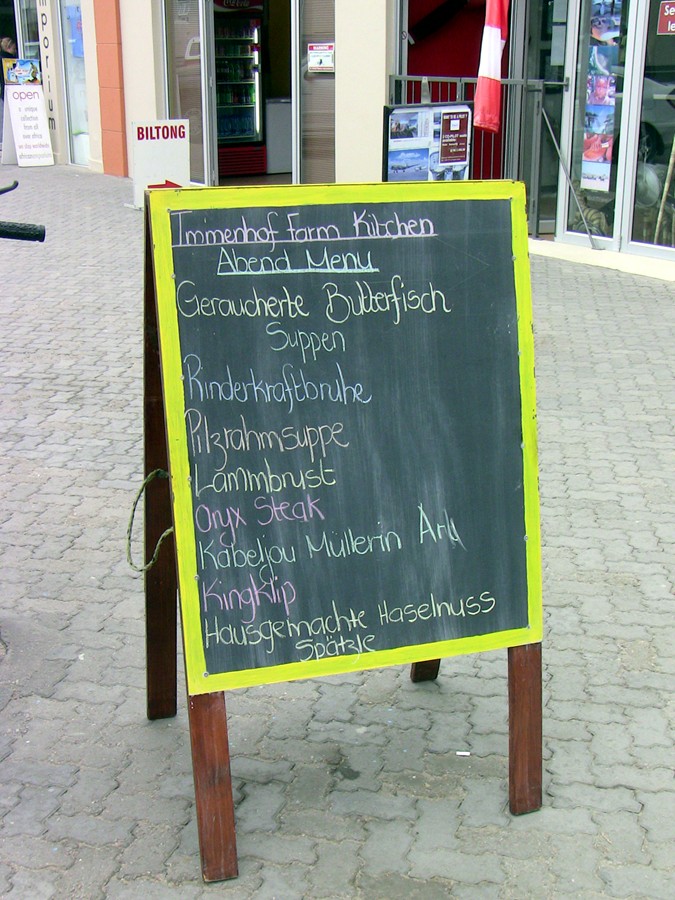 emporium
open
BILTONG
Immenhof Farm Kitchen
Abend Menu
Geraucherte Butterfisch
Suppen
Rinderkraftbruhe
Pilzrahmsuppe
Lammbrust
Oryx Steak
Kabeljou Müllerin Art
Kingklip
Hausgemachte Haselnuss
Spätzle